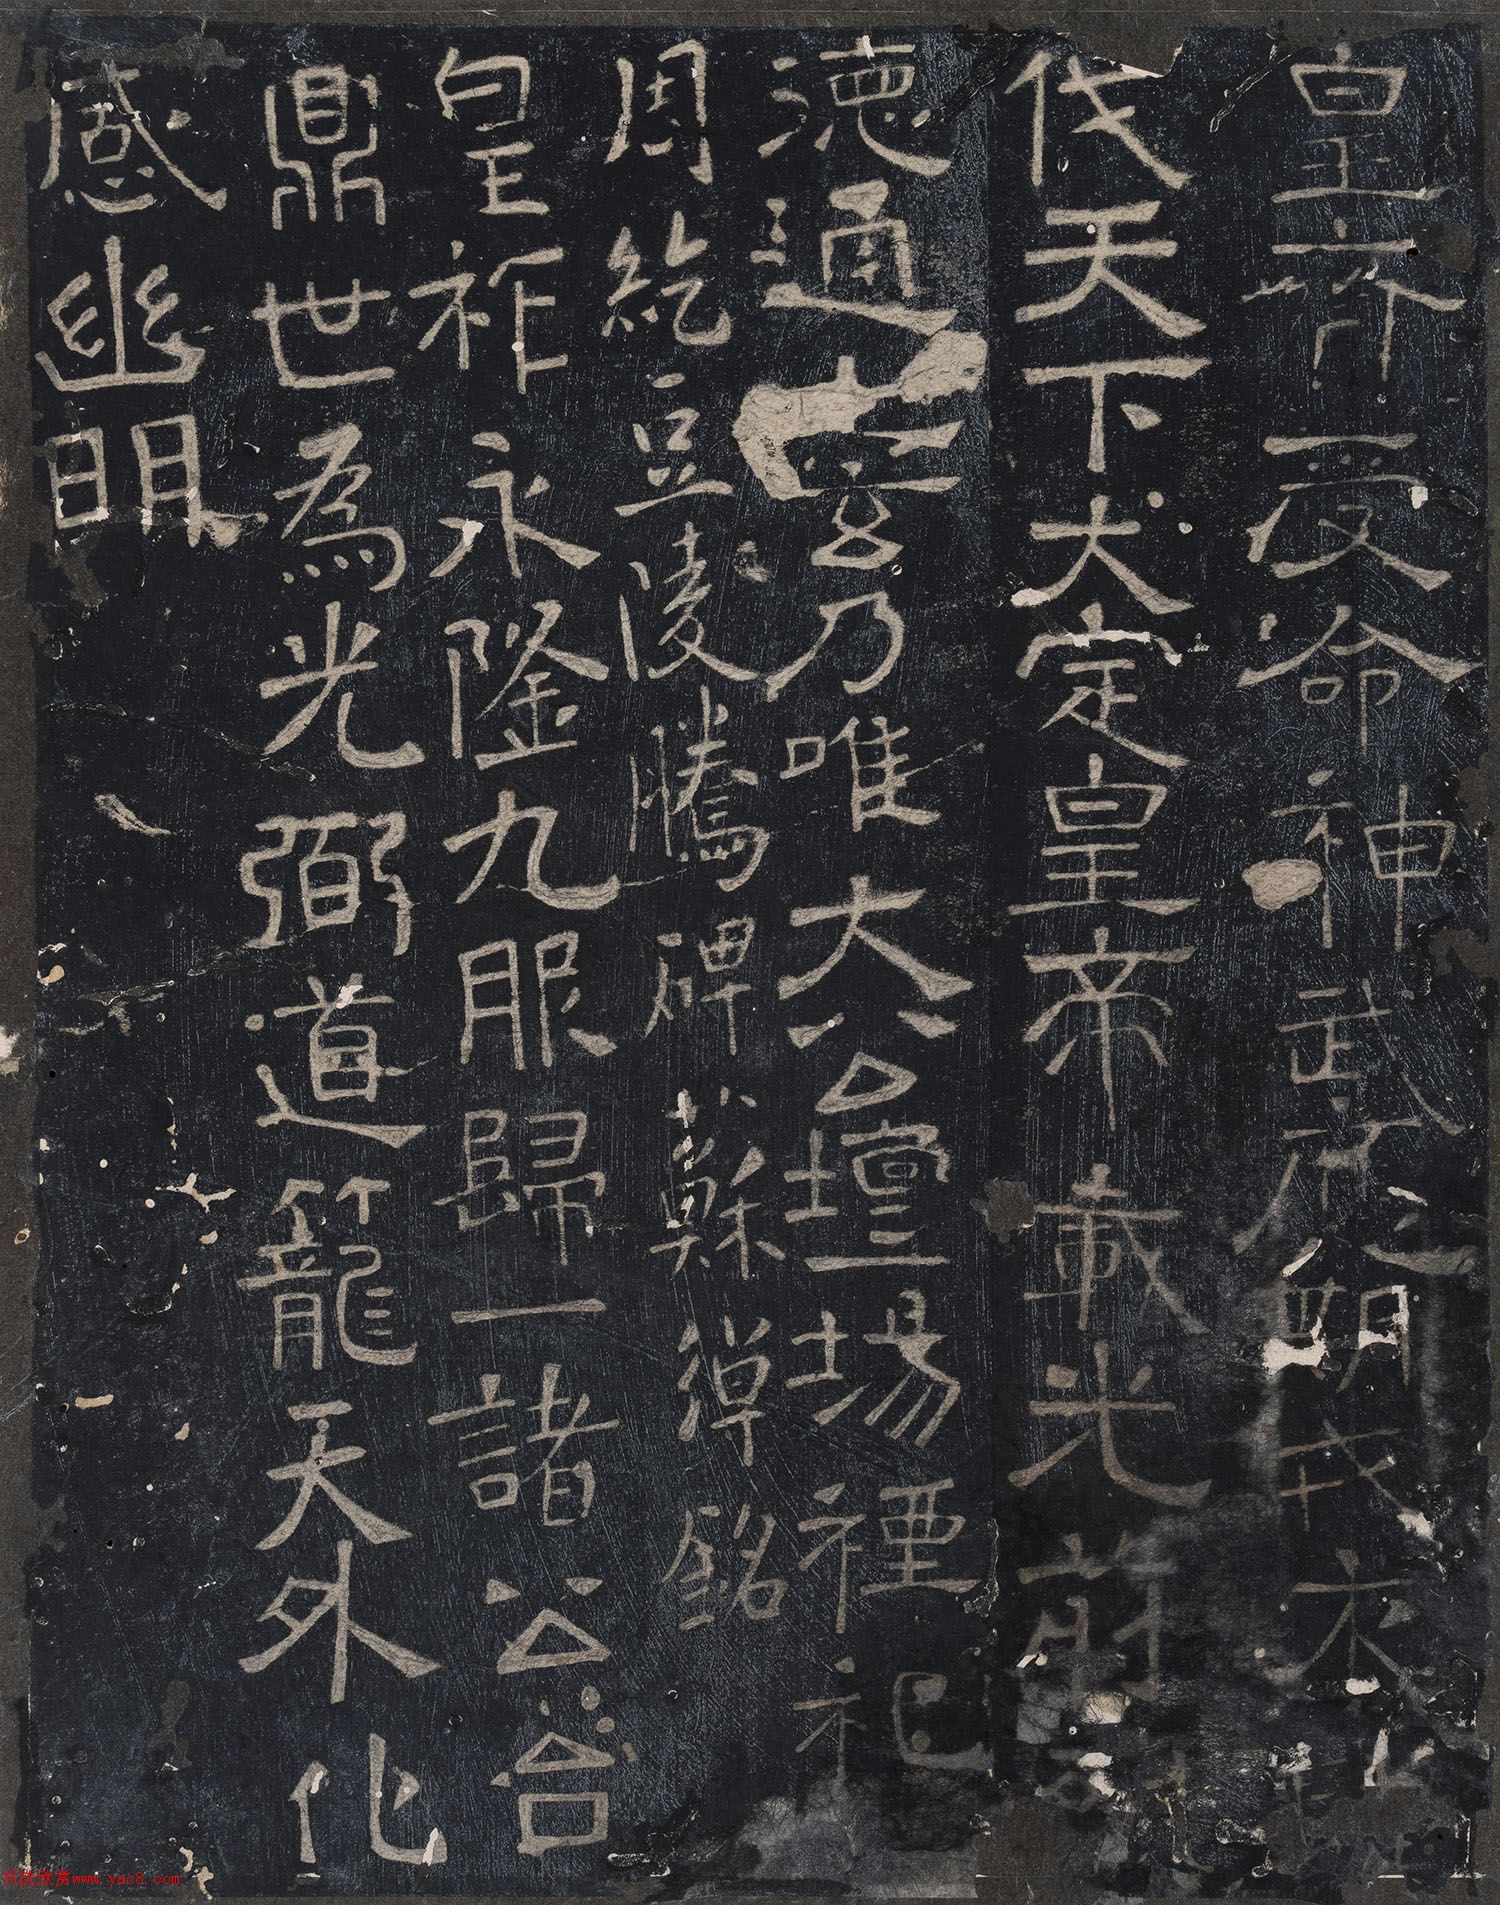 皇受命神武朝戎衣
伐天下大定皇帝載光前
德通玄乃唯大公壇場禋祀
周紇豆陵騰碑蘇綽銘
皇祚永隆九服歸一諸公台
鼎世為光弼道籠天外化
感幽明
书法欣赏www.yac8.com